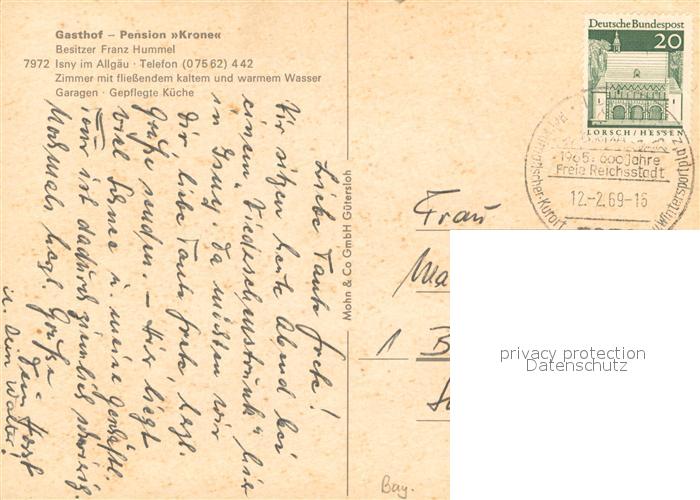 Gasthof – Pension »Krone«
Besitzer Franz Hummel
7972 Isny im Allgäu · Telefon (07562) 442
Zimmer mit fließendem kaltem und warmem Wasser
Garagen · Gepflegte Küche
Deutsche Bundespost
20
LORSCH/HESSEN
1965: 600 Jahre
Freie Reichsstadt
12.-2.69-16
Wintersportplatz
Kurort
Mohn & Co GmbH Gütersloh
Liebe Tante Grete!
Wir sitzen heute Abend bei
einem "Viedeschenstrunk" hier
in Isny. Da möchten wir
Dir liebe Tante Grete, herzl.
Grüße senden. – Hier liegt
viel Schnee u. meine Geschäftl.
Tour ist dadurch ziemlich schwierig.
Nochmals herzl. Grüße
Dein Horst
u. Dein Walter!
Frau
Ma
1 B
Bay.
privacy protection
Datenschutz